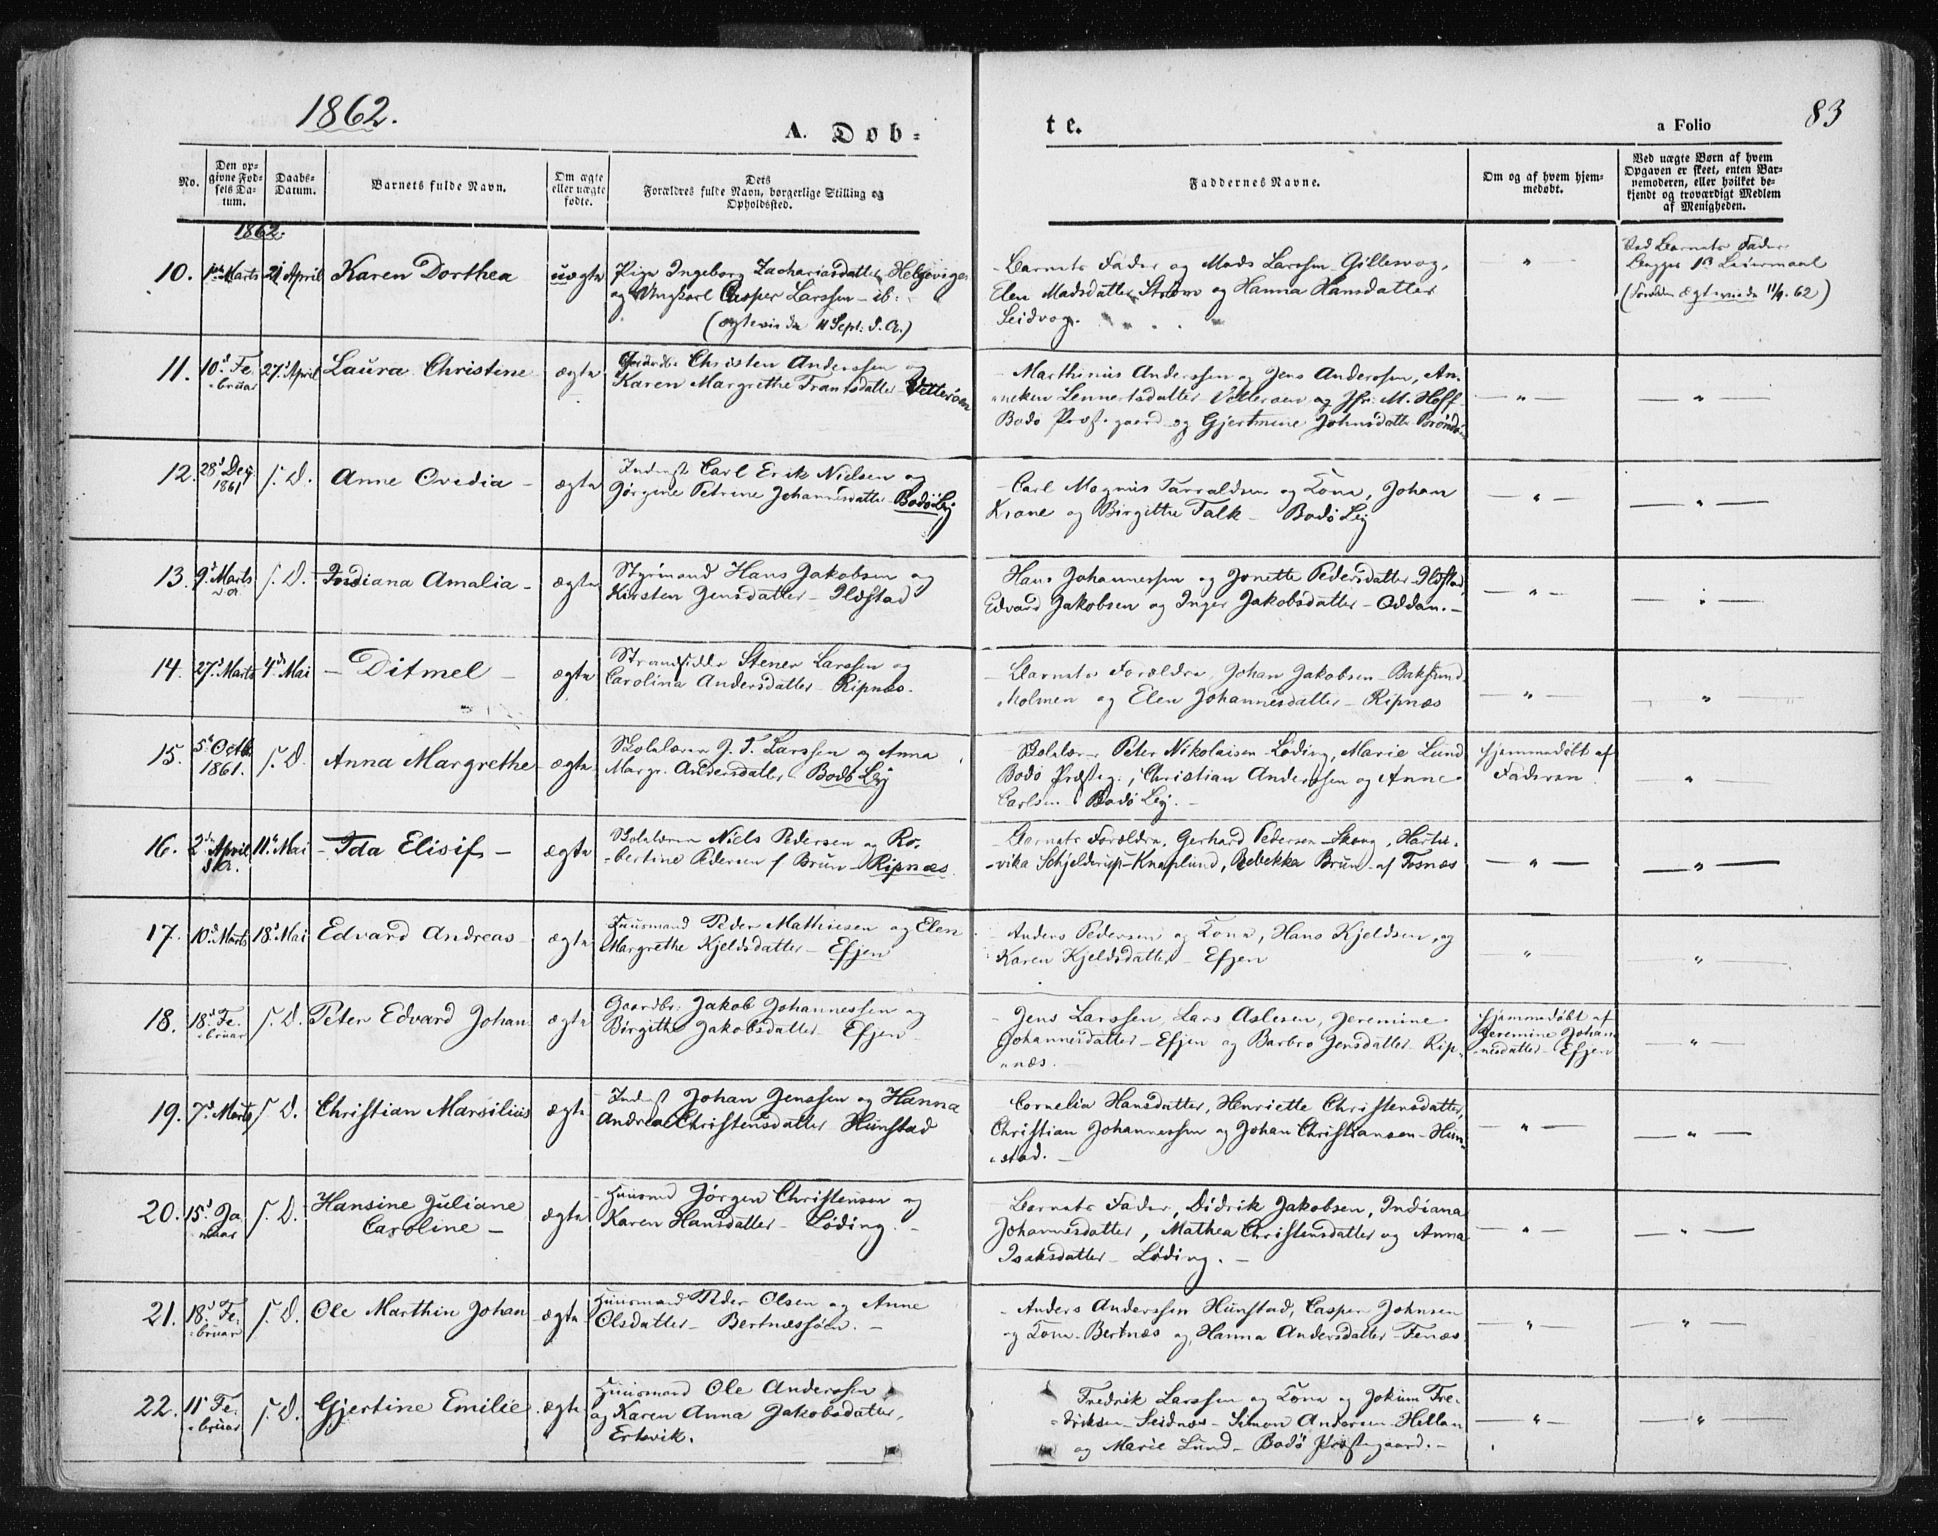 1862.
A. Döb-
te.
a Folio
83
No.
Den op-
givne Fød-
sels Da-
tum.
Daabs-
Datum.
Barnets fulde Navn.
Om ægte
eller uægte
fødte.
Dets
Forældres fulde Navn, borgerlige Stilling og
Opholdssted.
Faddernes Navne.
Om og af hvem hjem-
medøbt.
Ved uægte Børn af hvem
Opgaven er skeet, enten Bar-
nemoderen, eller hvilket be-
kjendt og troværdigt Medlem
af Menigheden.
1862.
10. 1ste Marts 21 April Karen Dorthea uægte
Pige Ingeborg Zachariasdatter Helgeviges
og Ungkarl Casper Larssen - ib:
(ægteviede 11 Sept: d. A.)
Barnets Fader og Mads Larssen Gillesvog,
Elen Madsdatter Strøm og Hanna Hansdatter
Seidvog.
"
Ved Barnets Fader
Begges 1ste Leiermaal
(Foreldre ægteviede 11/9. 62)
11. 10d Fe-
bruar 27d April Laura Christine ægte
Christen Anderssen og
Karen Margrethe Frantsdatter Vetterøen
Marthinus Anderssen og Jens Anderssen, An-
neken Lennertsdatter Vetterøen og Jfr. M. Hoff
Bodø Præstegaard og Gjertmine Johnsdatter
— " —
— " —
12. 28d Dec.
1861 s. D. Anne Ovidia - ægte
Inderst Carl Erik Nielsen og
Jørgine Petrine Johannesdatter Bodø Leij
Carl Magnus Tarraldsen og Kone, Johan
Krane og Birgitte Falk - Bodø Leij
— " —
— " —
13. 9d Marts
d. A. s. D. Indiana Amalia - ægte
Styrmand Hans Jakobsen og
Kirsten Jensdatter - Ildstad
Hans Johannessen og Jonette Pedersdatter - Ildstad,
Edvard Jakobsen og Inger Jakobsdatter - Oddan. -
— " —
— " —
14. 27d Marts 4de Mai - Ditmel - ægte
Strandsidder Stener Larssen og
Carolina Andersdatter - Ripnæs.
Barnets Forældre, Johan Jakobsen - Baksund
Molmen og Elen Johannesdatter - Ripnæs
— " —
"
15. 5d Octb.
1861. s. D. Anna Margrethe - ægte
Skolelærer J. T. Larssen og Anna
Margr. Andersdatter Bodø Leij
Skolelær. Peter Nikolaisen - Løding, Marie Lund
Bodø Præsteg., Christian Anderssen og Anne
Carlsen - Bodø Leij. -
Hjemmedøbt af
Faderen
"
16. 2den April
d. A. 11te Mai - Ida Elisif - ægte
Skolelærer Niels Pedersen og Ro-
bertine Pedersen f. Brun - Ripnæs
Barnets Forældre, Gerhard Pedersen - Skaug, Hartu-
vika Schjelderup - Knaplund, Rebekka Brun - af Fosnæs
— " —
— " —
17. 10d Marts 18d Mai Edvard Andreas - ægte
Huusmand Peder Mathiesen og Elen
Margrethe Kjeldsdatter - Efjen
Anders Pedersen og Kone, Hans Kjeldsen, og
Karen Kjeldsdatter - Efjen
"
"
18. 18d Fe-
bruar s. D. Peter Edvard Johan ægte
Gaardbr. Jakob Johannessen og
Birgithe Jakobsdatter - Efjen
Jens Larssen, Lars Aslesen, Jeremine
Johannesdatter - Efjen og Barbro Jensdatter - Rip-
næs.
Hjemmedøbt af
Jeremine Johan-
nesdatter - Efjen
— " —
19. 7d Marts s. D. Christian Marsilius ægte
Inderst Johan Jenssen og Hanna
Andrea Christensdatter Hunstad
Cornelia Hansdatter, Henriette Christensdatter,
Christian Johannessen og Johan Christiansen - Hun-
stad. -
— " —
— " —
20. 15d Ja-
nuar s. D. Hansine Juliane
Caroline - ægte
Huusmd Jørgen Christensen og
Karen Hansdatter - Løding. -
Barnets Fader, Didrik Jakobsen, Indiana
Johannesdatter, Mathea Christensdatter og Anna
Isaksdatter - Løding. -
— " —
— " —
21. 18d Fe-
bruar s. D. Ole Marthin Johan ægte
Huusmand Peder Olsen og Anne
Olsdatter - Bertnessøen. -
Anders Anderssen Hunstad, Casper Johnsen
og Kone - Bertnæs og Hanna Andersdatter - Fenæs
— " —
— " —
22. 11te Fe-
bruar s. D. Gjertine Emilie ægte
Huusmand Ole Anderssen
og Karen Anna Jakobsdatter,
Ertsvik.
Fredrik Larssen og Kone og Jokum Fre-
driksen - Seidnæs - Simon Andersen - Hellan
og Marie Lund - Bodø Præstegaard. -
— " —
— " —